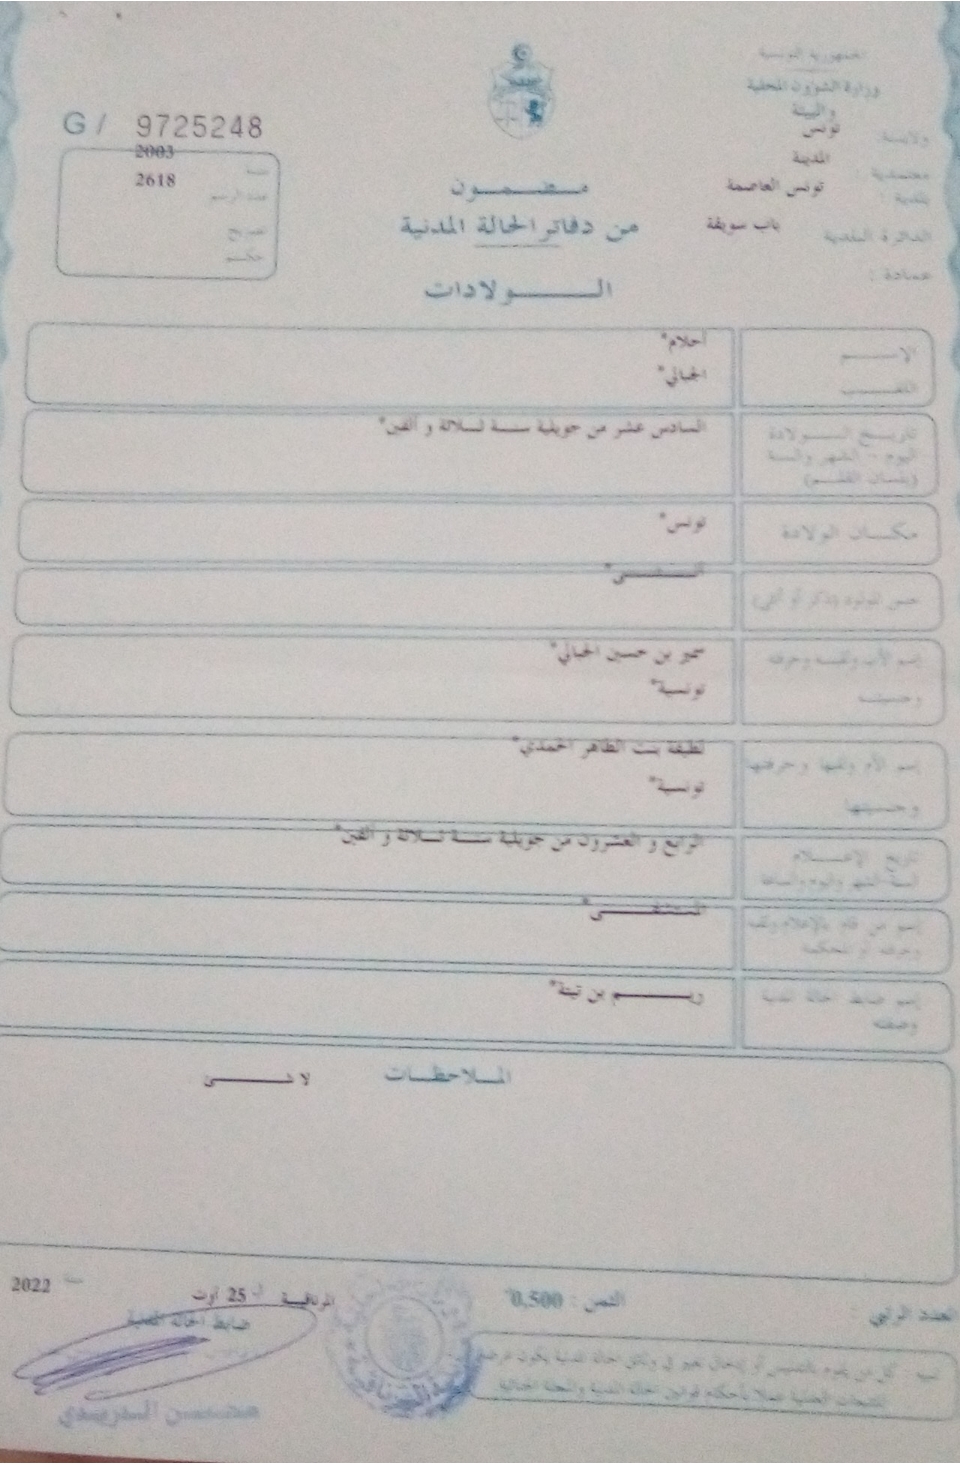 الجمهورية التونسية
وزارة الشؤون المحلية
والبيئة
ولاية: تونس
معتمدية: المدينة
بلدية: تونس العاصمة
الدائرة البلدية باب سويقة
عمادة:
G / 9725248
سنة 2003
عدد الرسم 2618
تصريح
حكم
مضمون
من دفاتر الحالة المدنية
الولادات
الاسم أحلام*
اللقب الجبالي*
تاريخ الولادة السادس عشر من جويلية سنة ثلاثة و ألفين*
اليوم - الشهر والسنة
(بلسان القلم)
مكان الولادة تونس*
جنس المولود (ذكر أو أنثى) أنثى*
إسم الأب ولقبه وحرفته سمير بن حسين الجبالي*
وجنسيته تونسية*
إسم الأم ولقبها وحرفتها لطيفة بنت الطاهر الحمدي*
وجنسيتها تونسية*
تاريخ الإعلام الرابع و العشرون من جويلية سنة ثلاثة و ألفين*
السنة الشهر واليوم والساعة
إسم من قام بالإعلام ولقبه المستشفى*
وحرفته أو المحكمة
إسم ضابط الحالة المدنية ريم بن
وصفته
الملاحظات لا شئ
العدد الرتبي :
الثمن : 0,500
المرناقية في 25 أوت سنة 2022
ضابط الحالة المدنية
تنبيه كل من يقوم بالتدليس أو إدخال تغيير في وثائق الحالة المدنية يكون عرضة
للتتبعات العدلية عملا بأحكام قوانين الحالة المدنية والمجلة الجنائية
محسن الدريدي